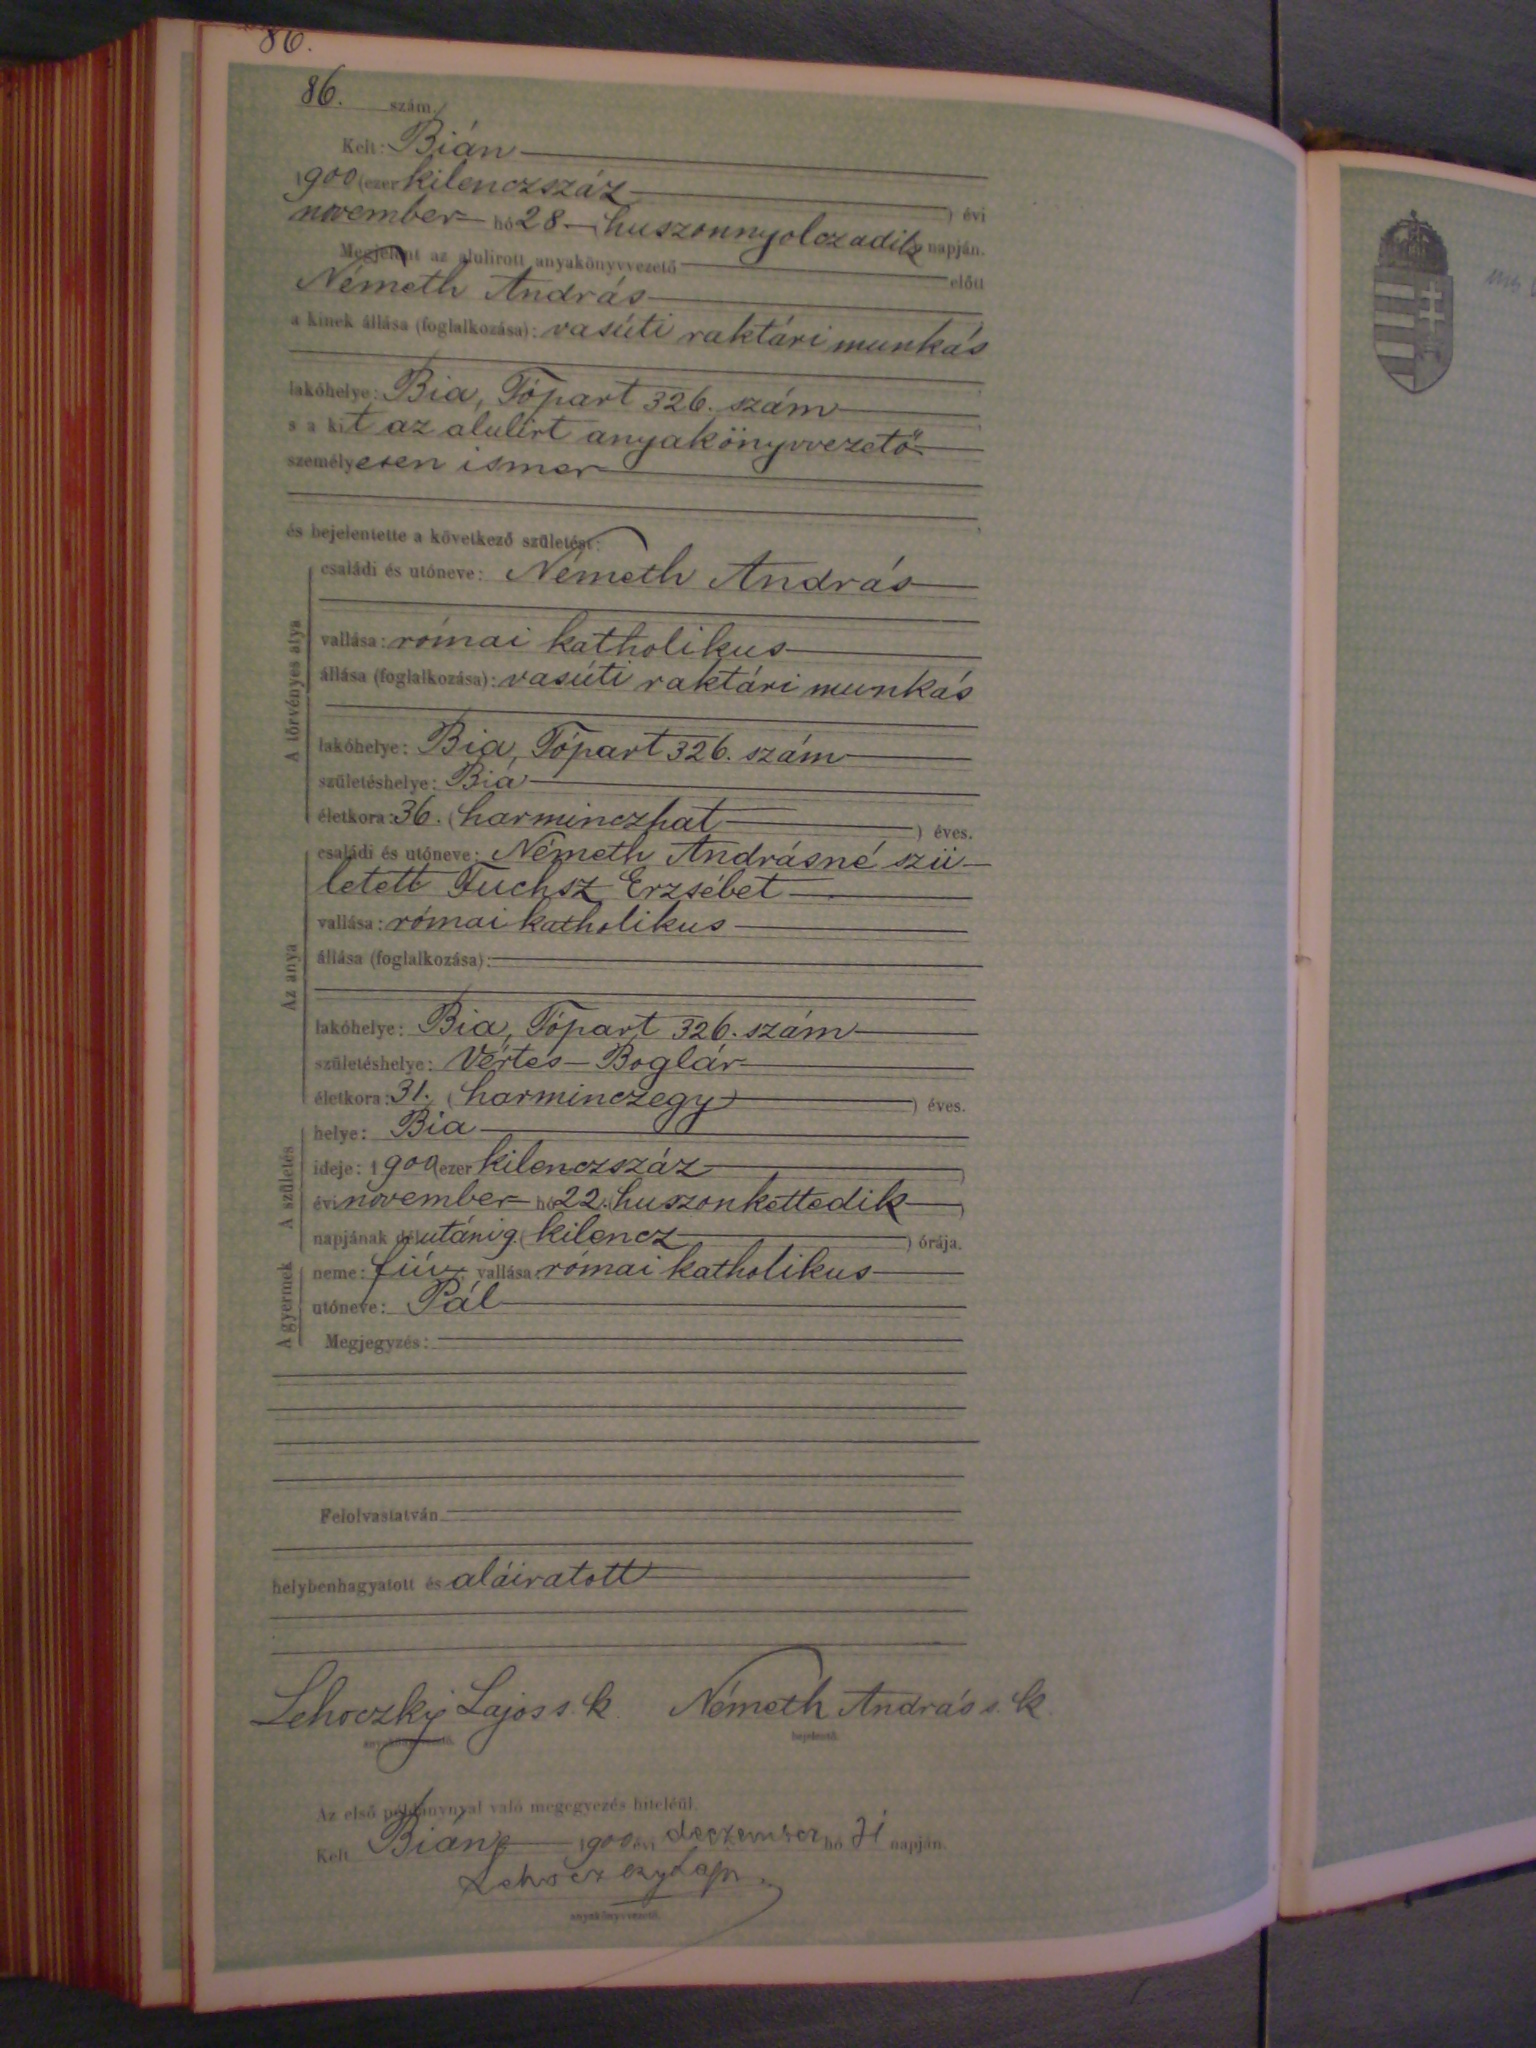 86.
86. szám.
Kelt: Bián
1900 (ezer kilenczszáz ) évi
november hó 28 (huszonnyolczadik napján.
Megjelent az alulirott anyakönyvvezető előtt
Németh András
a kinek állása (foglalkozása): vasúti raktári munkás
lakóhelye: Bia, Tópart 326. szám
s a kit az alulírt anyakönyvvezető
személyesen ismer
és bejelentette a következő születést:
A törvényes atya
családi és utóneve: Németh András
vallása: római katholikus
állása (foglalkozása): vasúti raktári munkás
lakóhelye: Bia, Tópart 326. szám
születéshelye: Bia
életkora: 36. (harminczhat ) éves.
Az anya
családi és utóneve: Németh Andrásné szü-
letett Fuchsz Erzsébet
vallása: római katholikus
állása (foglalkozása):
lakóhelye: Bia, Tópart 326. szám
születéshelye: Vértes-Boglár
életkora: 31. (harminczegy ) éves.
A születés
helye: Bia
ideje: 1900 (ezer kilenczszáz )
évi november hó 22. (huszonkettedik )
napjának délutáni 9. (kilencz ) órája.
A gyermek
neme: fiú; vallása: római katholikus
utóneve: Pál
Megjegyzés:
Felolvastatván
helybenhagyatott és aláiratott
Lehoczky Lajos s. k. Németh András s. k.
anyakönyvvezető. bejelentő.
Az első példánynyal való megegyezés hiteléül.
Kelt Bián 1900 évi deczember hó 31 napján.
Lehoczky Lajos
anyakönyvvezető.